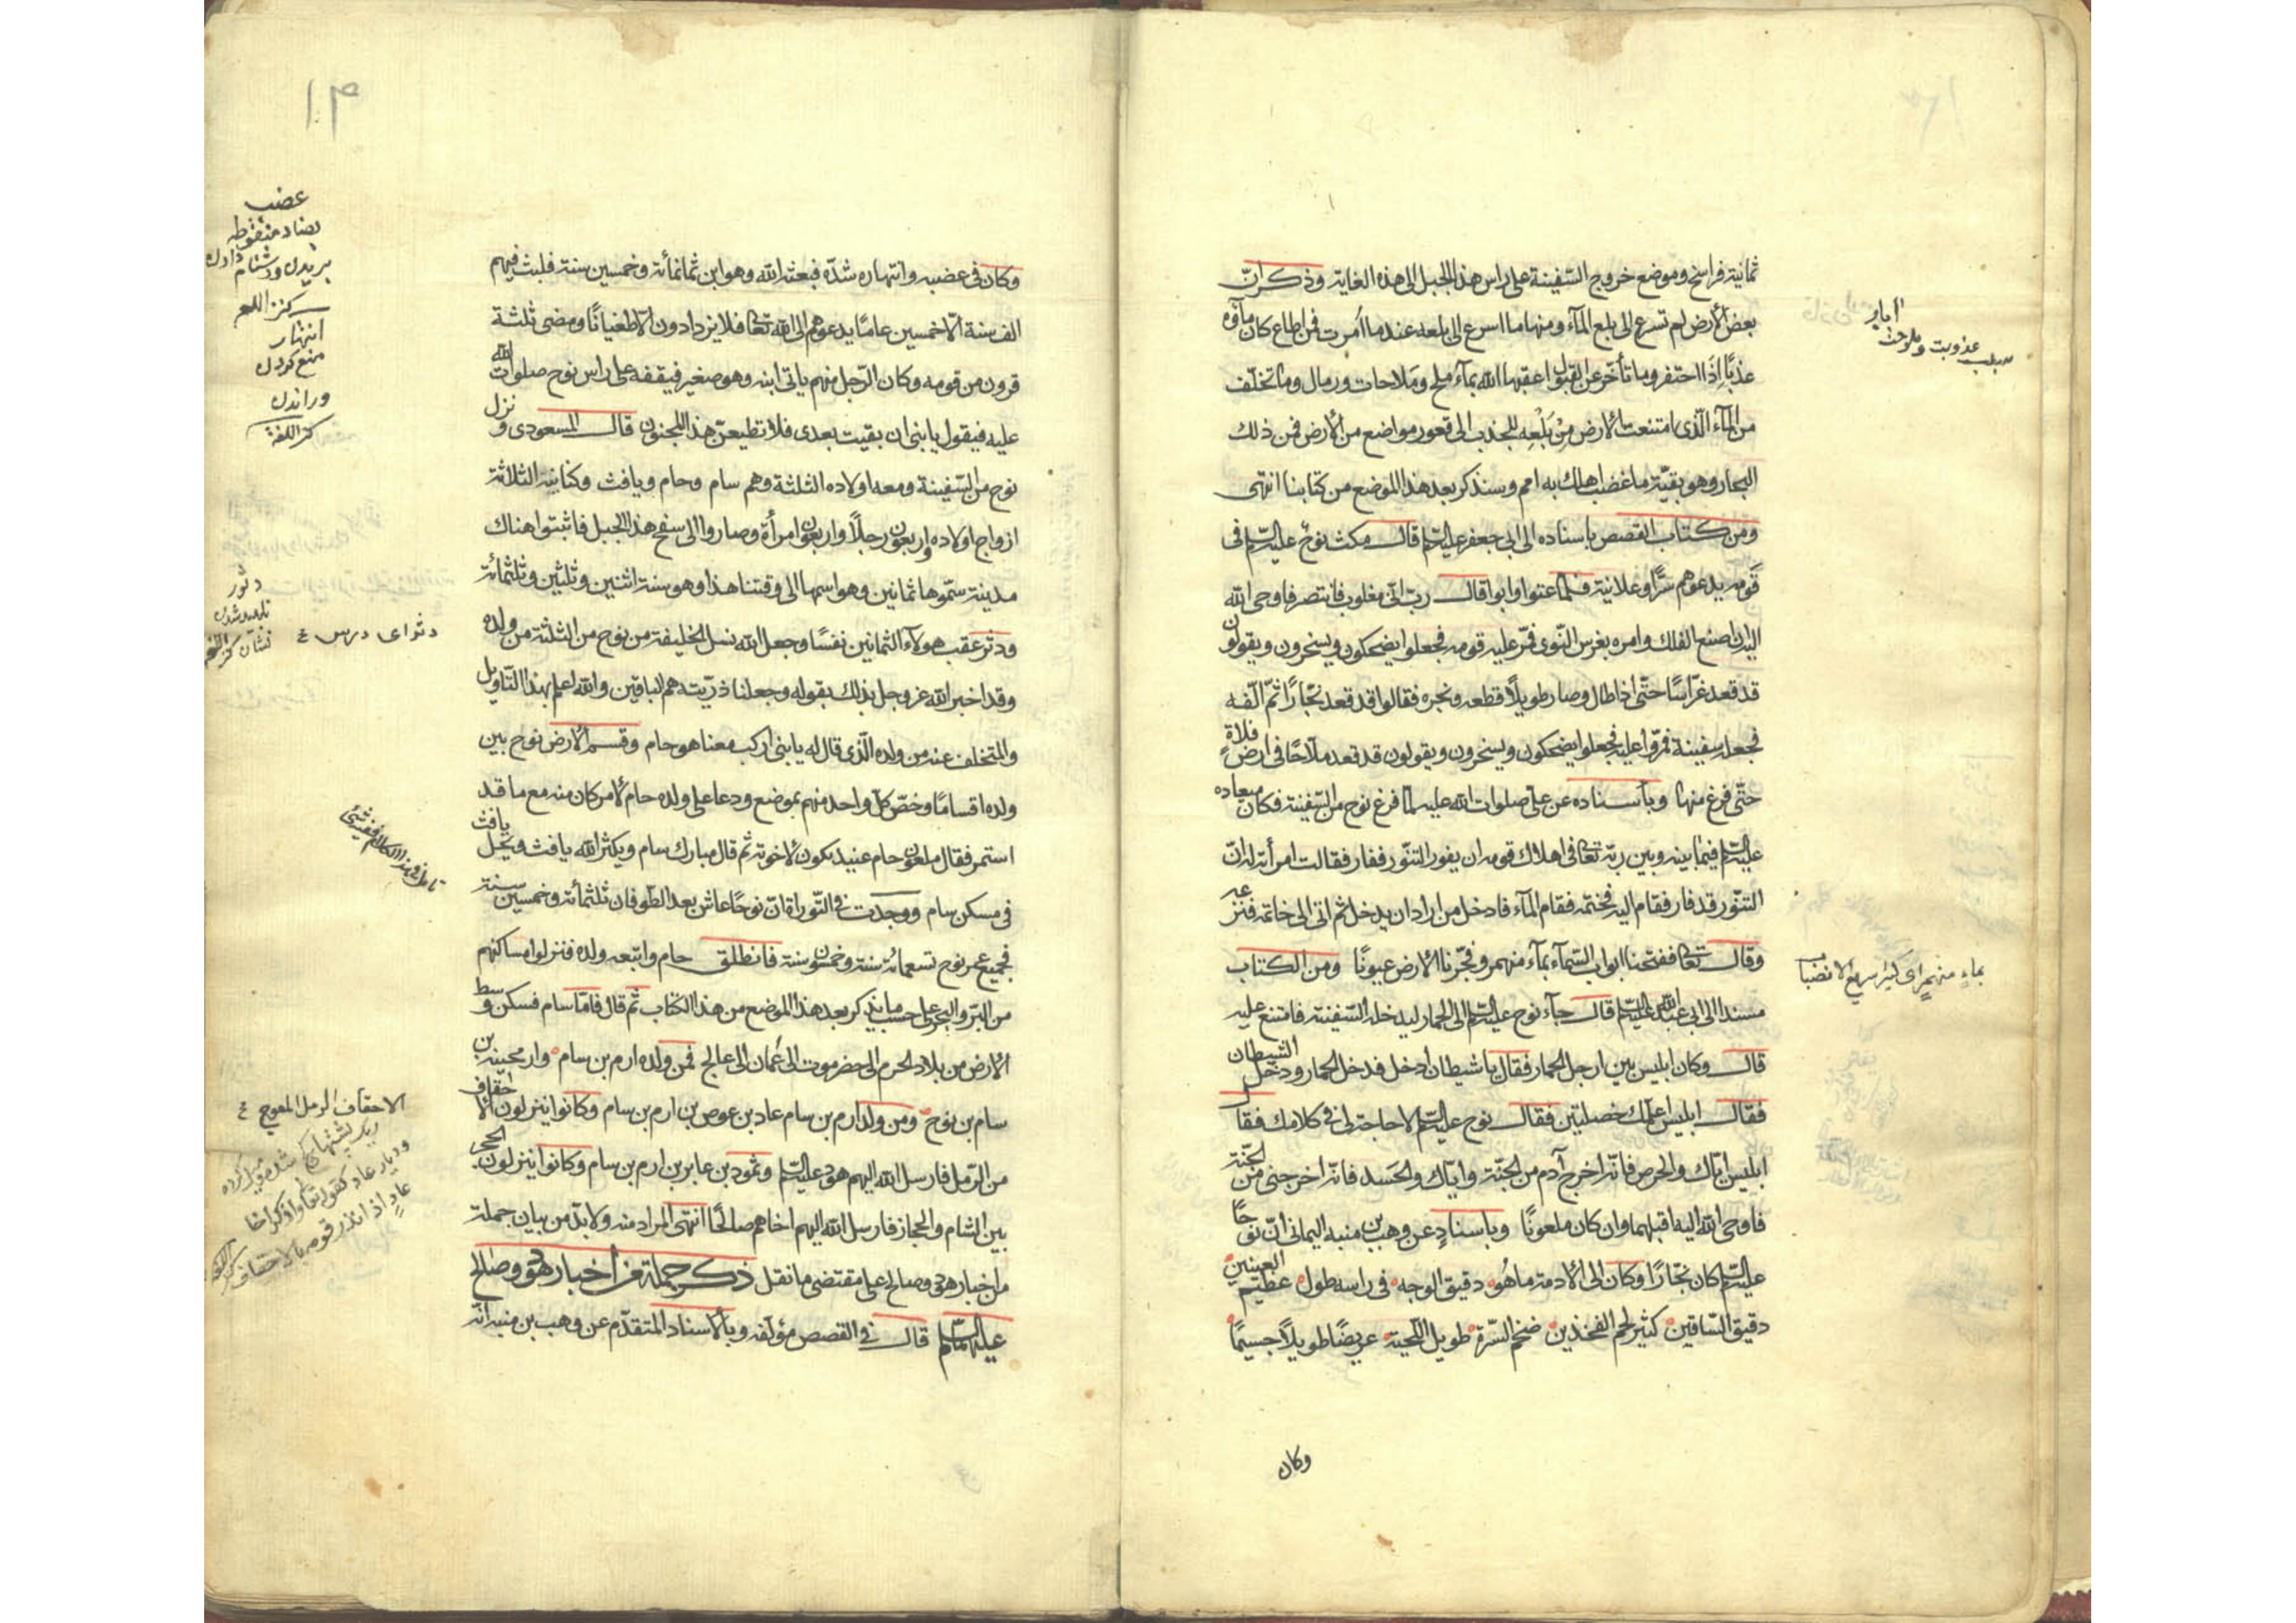 ثمانية فراسخ وموضع خروج السّفينة على راس هذا الجبل الى هذه الغاية وذكر انّ
بعض الأرض لم تسرع الى بلع المآء ومنها ما اسرع الى بلعه عند ما اُمرت فمن اطاع كان مآؤه
عذبًا اِذَا احتفر وما تأخّر عن القبول اعقبها الله بمآء ملح ومَلاحات ورمال وما تخلّف
من المآء الّذى امتنعت الأرض مِنْ بَلْعِهِ انجذب الى قعور مواضع من الأرض فمن ذلك
البحار وهو بقيّة ما غضب اهلك به امم وسنذكر بعد هذا الموضع من كتابنا انتهى
ومن كتاب القصص باسناده الى ابى جعفر عليه السّلم قال مكث نوح عليه السّلم فى
قَومه يدعوهم سرًّا وعلانية فلمّا عتوا وابوا قال ربّ انّى مغلوب فانتصر فاوحى الله
اليه ان اصنع الفلك وامره بغرس النّوى فمرّ عليه قومه فجعلوا يضحكون ويسخرون ويقولون
قد قعد غرّاسًا حتّى اذا طال وصار طويلًا قطعه ونجره فقالوا قد قعد نجّارًا ثمّ الّفه
فجعله سفينة فمرّوا عليه فجعلوا يضحكون ويسخرون ويقولون قد قعد ملّاحًا فى ارض فلاة
حتّى فرغ منها وباسناده عن على صلوات الله عليه لمّا فرغ نوح من السّفينة فكان ميعاده
عليه السّلم فيما بينه وبين ربّه تعالى فى اهلاك قومه ان يفور التنّور ففار فقالت امرأته له انّ
التنّور قد فار فقام اليه فختمه فقام المآء فادخل من اراد ان يدخل ثم اتى الى خاتمه فنزعه
وقال تعالى ففتحنا ابواب السّمآء بمآء منهمر وفجّرنا الأرض عيونًا ومن الكتاب
مسندا الى ابى عبد الله عليه السّلم قال جآء نوح عليه السّلم الى الحمار ليدخله السّفينة فامتنع عليه
قال وكان ابليس بين ارجل الحمار فقال يا شيطان ادخل فدخل الحمار ودخل الشيطان
فقال ابليس اعلّمك خصلتين فقال نوح عليه السّلم لا حاجة لى فى كلامك فقال
ابليس ايّاك والحرص فانّه اخرج آدم من الجنّة وايّاك والحَسد فانّه اخرجنى من الجنّة
فاوحى الله اليه اقبلهما وان كان ملعونًا وباسنادٍ عن وهب بن منبه اليمانى انّ نوحًا
عليه السّلم كان نجّارًا وكان الى الأدمة ما هُو دقيق الوجه فى راسه طول عظيم العينين
دقيق السّاقين كثير لحم الفخذين ضخم السّرّة طويل اللّحية عريضًا طويلًا جسيمًا
وكان
ابار
سبب عذوبت وملوحت
بماءٍ منهمرٍ اى كثير سريع الانصباب
١٣
وكان فى غضبه وانتهاره شدّة فبعثه الله وهو ابن ثمانمائة وخمسين سنة فلبث فيهم
الف سنة الّا خمسين عامًا يدعوهم الى الله تعالى فلا يزدادون الّا طغيانًا ومضى ثلثة
قرون من قومه وكان الرّجل منهم ياتى ابنه وهو صغير فيقفه على راس نوح صلوات الله
عليه فيقول يا بنى ان بقيت بعدى فلا تطيعنّ هذا المجنون قال المسعودى ونزل
نوح من السّفينة ومعه اولاده الثلثة وهم سام وحام ويافث وكنائنه الثلاثة
ازواج اولاده واربعون رجلًا واربعون امرأة وصاروا الى سفح هذا الجبل فابتنوا هناك
مدينة سمّوها ثمانين وهو اسمها الى وقتنا هذا وهو سنة اثنين وثلثين وثلثمائة
ودثر عقب هولآء الثمانين نفسًا وجعل الله نسل الخليفة من نوح من الثلثة من ولده
وقد اخبر الله عز وجل بذلك بقوله وجعلنا ذرّيّته هم الباقين والله اعلم بهذا التاويل
والمتخلف عنه من ولده الّذى قال له يا بنى اركب معنا هو حام وقسم الأرض نوح بين
ولده اقسامًا وخصّ كلّ واحد منهم بموضع ودعا على ولده حام لأمر كان منه مع ما قد
استمر فقال ملعون حام عبيد يكون لأخوته ثم قال مبارك سام ويكثر الله يافث ويحلّ يافث
فى مسكن سام ووجدت فى التّوراة انّ نوحًا عاش بعد الطّوفان ثلثمأئة وخمسين سنة
فجميع عمر نوح تسعمائة سنة وخمسون سنة فانطلق حام واتبعه ولده فنزلوا مساكنهم
من البرّ والبحر على حسب ما نذكر بعد هذا الموضع من هذا الكتاب ثم قال فامّا سام فسكن وسط
الأرض من بلاد الحرم الى حضرموت الى عُمان الى عالج فمن ولده ارم بن سام وارمحينه بن
سام بن نوح ومن ولد ارم بن سام عاد بن عوص بن ارم بن سام وكانوا ينزلون الأحقاف
من الرّمل فارسل الله اليهم هود عليه السّلم وثمود بن عابر بن ارم بن سام وكانوا ينزلون الحجر
بين الشام والحجاز فارسل الله اليهم اخاهم صالحًا انتهى المراد منه ولا بدّ من بيان جملة
من اخبار هود وصالح على مقتضى ما نقل ذكر جملة من أخبار هود وصالح
عليهما السّلم قال فى القصص مؤلّفه وبالأسناد المتقدّم عن وهب بن منبه انّه
عضب
بضاد منقوطه
بريدن ودشنام دادن
كنز اللغه
انتهار
منع كردن
وراندن
كنز اللغة
دثور
دثر اى درس
الاحقاف الرمل المعوج
وديار عاد كقوله تعالى واذكر اخا
عادٍ اذ انذر قومه بالاحقاف